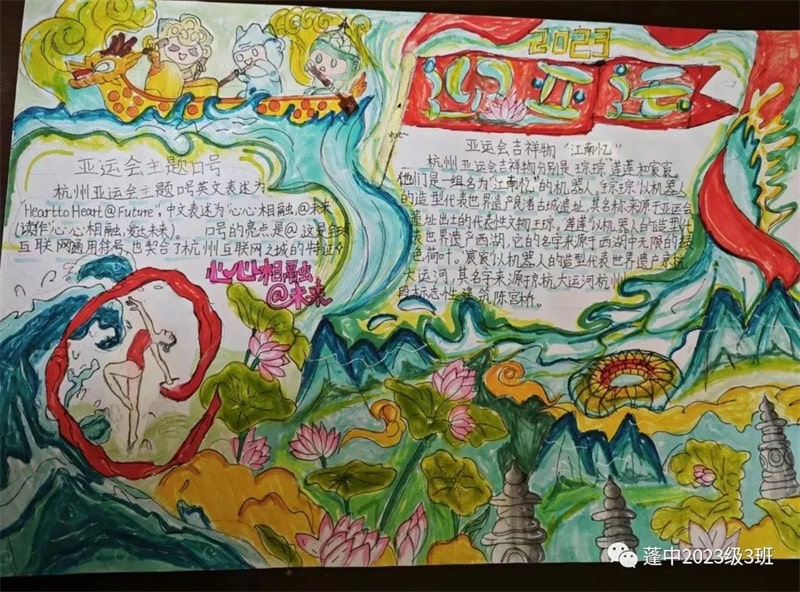 2023
迎亚运
亚运会主题口号
杭州亚运会主题口号英文表述为
"Heart to Heart @Future",中文表述为"心心相融,@未来
(读作"心心相融,爱达未来)。 口号的亮点是@这是全球
互联网通用符号,也契合了杭州互联网之城的特征
心心相融,
@未来
亚运会吉祥物"江南忆"
杭州亚运会吉祥物分别是琮琮、莲莲和宸宸。
他们是一组名为"江南忆"的机器人,琮琮以机器人
的造型代表世界遗产良渚古城遗址,其名称来源于亚运会
遗址出土的代表性文物玉琮。莲莲以机器人的造型代
表世界遗产西湖,它的名字来源于西湖中无限的绿
色荷叶。宸宸以机器人的造型代表世界遗产京杭
大运河,其名字来源于京杭大运河杭州
段标志性建筑拱宸桥。
蓬中2023级3班